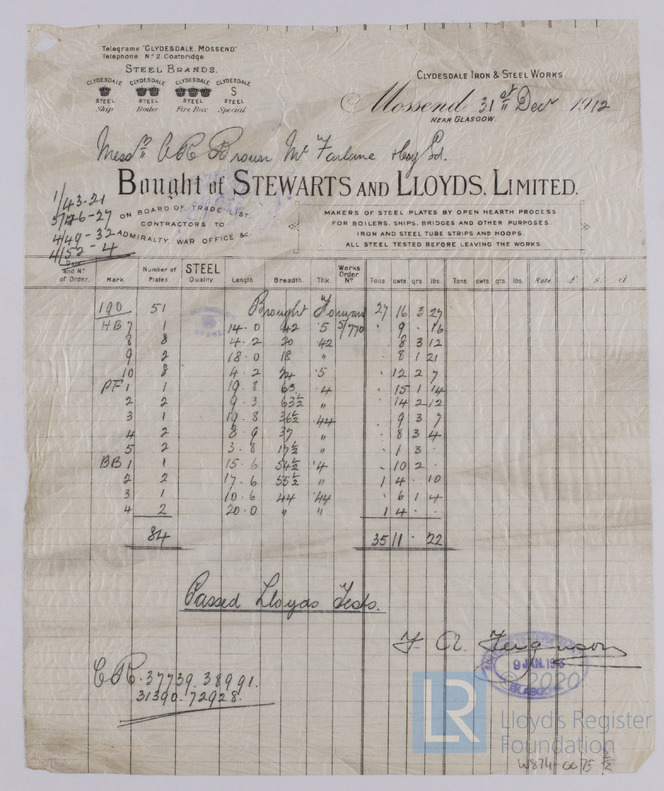 Telegrams "CLYDESDALE, MOSSEND"
Telephone No 2, Coatbridge
STEEL BRANDS.
CLYDESDALE CLYDESDALE CLYDESDALE CLYDESDALE
S
STEEL STEEL STEEL STEEL
Ship Boiler Fire Box Special
CLYDESDALE IRON & STEEL WORKS
Mossend 31st Decr 1912
NEAR GLASGOW.
Messrs A R Brown McFarlane & Coy Ld.
Bought of STEWARTS AND LLOYDS, LIMITED.
1/43-21
5/46-27
4/49-32
4/52-4
ON BOARD OF TRADE LIST,
CONTRACTORS TO
ADMIRALTY, WAR OFFICE &c.
MAKERS OF STEEL PLATES BY OPEN HEARTH PROCESS
FOR BOILERS, SHIPS, BRIDGES AND OTHER PURPOSES.
IRON AND STEEL TUBE STRIPS AND HOOPS.
ALL STEEL TESTED BEFORE LEAVING THE WORKS.
Date and No of Order. Mark. Number of Plates STEEL Quality Length Breadth. Thk. Works Order No Tons cwts. qrs. lbs. Tons. cwts. qrs. lbs. Rate. £ s. d.
190 51 Brought Forward 27 16 3 27
HB 7 1 14.0 42 .5 5/770 . 9 . 16
8 8 4.2 20 .42 . 8 3 12
9 2 18.0 18 " . 8 1 21
10 8 4.2 24 .5 . 12 2 7
PF 1 1 19.8 63 .4 . 15 1 14
2 2 9.3 63½ " . 14 2 12
3 1 19.8 36½ .44 . 9 3 7
4 2 8.9 37 " . 8 3 4
5 2 3.8 17½ " . 1 3 .
BB 1 1 15.6 54½ .4 . 10 2 .
2 2 17.6 55½ " 1 4 . 10
3 1 10.6 44 .44 . 6 1 4
4 2 20.0 " " 1 4 . .
84 35 11 . 22
Passed Lloyds Tests.
F. A. Ferguson
9 JAN. 1913
GLASGOW
C/R. 37739. 38991.
31390. 72928.
© 2020
LR Lloyd's Register
Foundation
W874-0075 ½